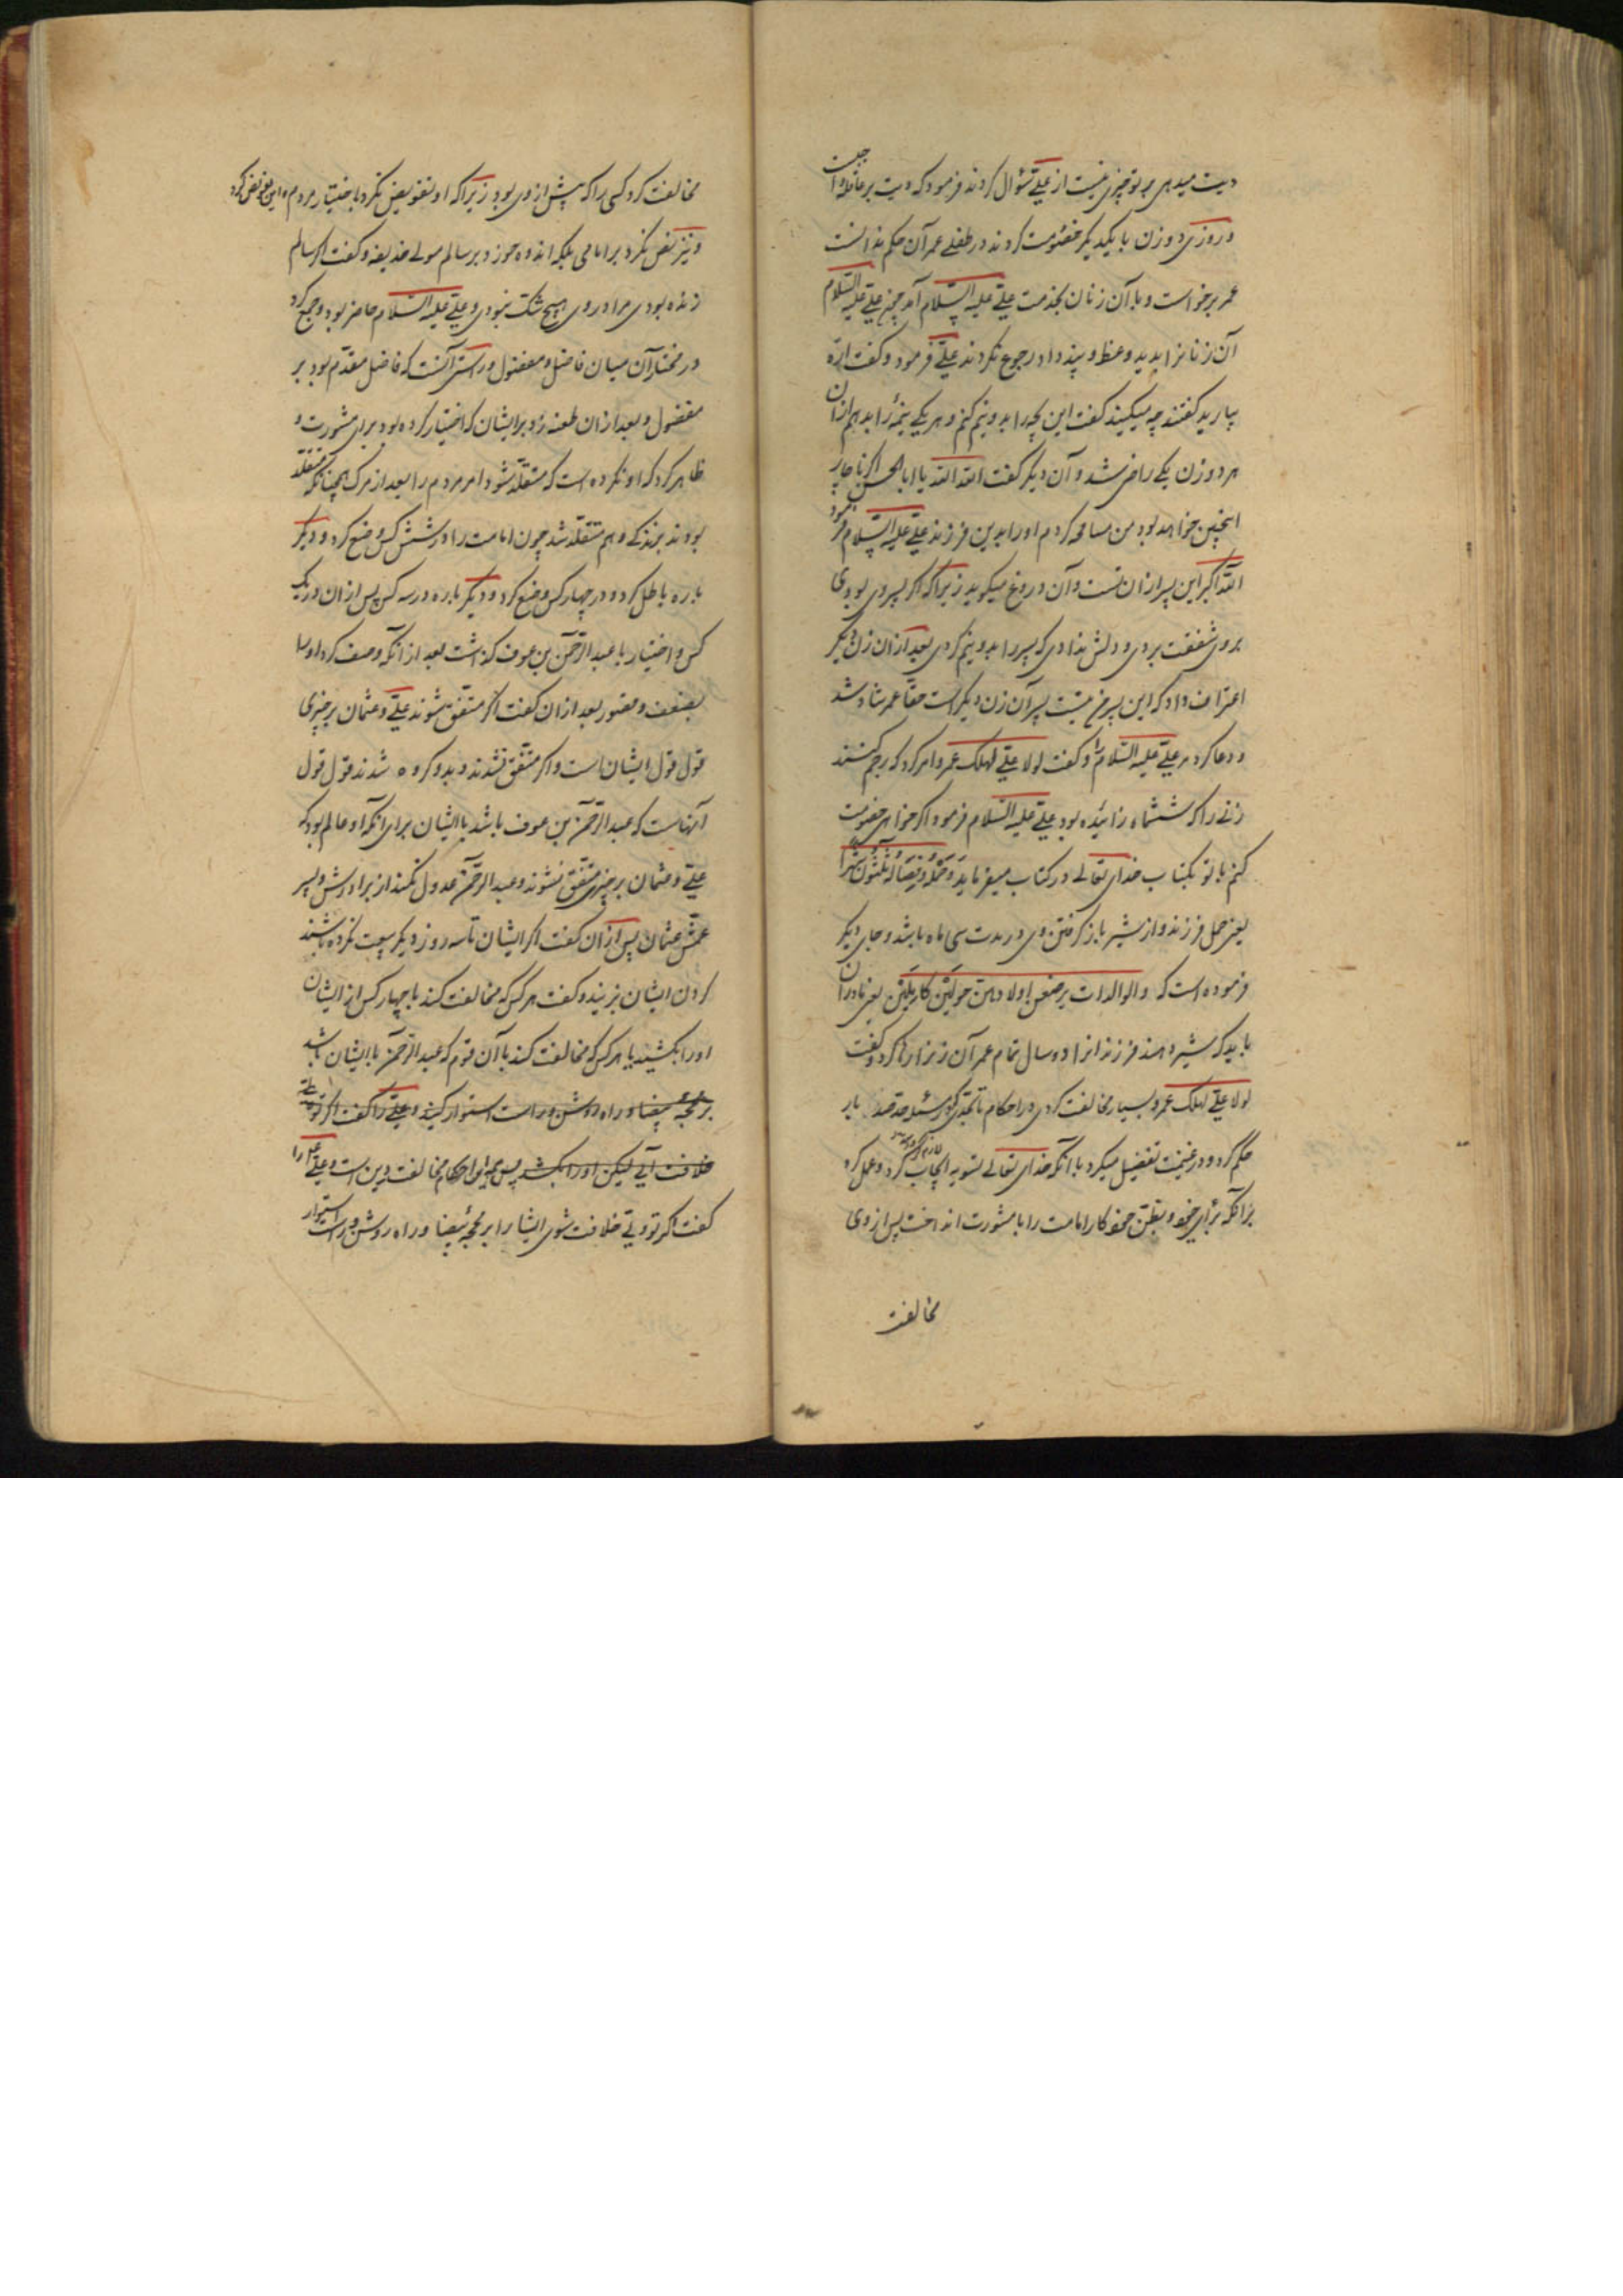 دیت میدهی بر تو چیزی نیست از علی سؤال کردند فرمود که دیت بر عاقله واجبست
و روزی دو زن با یکدیگر خصومت کردند در طفلی عمر آن حکم ندانست
عمر برخواست و با آن زنان بخدمت علی علیه السّلام آمد چون علی علیه السّلام
آن زنانرا بدید وعظ و پند داد رجوع نکردند علی فرمود و گفت ارّه
بیارید گفتند چه میکنید گفت این بچه را بدو نیم کنم و هر یکی نیمهٔ را بدهم ازان
هر دو زن یکی راضی شد و آن دیگر گفت الله الله یا ابا الحسن اگر ناچار
اینچنین خواهد بود من مسامحه کردم او را بدین فرزند علی علیه السّلام فرمود
الله اکبر این پسر ازان تست و آن دروغ میگوید زیرا که اگر پسر وی بودی
بر وی شفقت بردی و دلش ندادی که پسر را بدو نیم کردی بعد ازان زن دیگر
اعتراف داد که این پسر من نیست پسر آن زن دیگر است حقا عمر شاد شد
و دعا کرد مر علی علیه السّلام را و گفت لولا علی لهلک عمر و امر کرد که رجم کنند
زنی را که ششماه زائیده بود علی علیه السّلام فرمود اگر خواهی خصومت
کنم با تو بکتاب خدای تعالی در کتاب میفرماید وَحَمْلُهُ وَفِصَالُهُ ثَلٰثُونَ شَهْراً
یعنی حمل فرزند و از شیر باز گرفتن وی در مدت سی ماه باشد و جای دیگر
فرموده است که والوالدات یرضعن اولادهن حولین کاملین یعنی مادران
باید که شیر دهند فرزندانرا دو سال تمام عمر آن زنرا رها کرد و گفت
لولا علی لهلک عمر و بسیار مخالفت کردی در احکام تا بحدی که در مسئله حد صد بار
حکم کرد و در غنیمت تفضیل میکرد با آنکه خدای تعالی تسویه ایجاب کرد و عمل کرد
بر آنکه برای خود و بظن خود کار امامت را با مشورت انداخت پس از وی
مخالفت
مخالفت کرد کسی را که پیش از وی بود زیرا که او تفویض نکرد باختیار مردم و این تفویض کرد
و نیز نص نکرد بر امامی بلکه اندوه خورد بر سالم مولی حذیفه و گفت اگر سالم
زنده بودی مرا در وی هیچ شک نبودی و علی علیه السّلام حاضر بود و جمع کرد
در مختار آن میان فاضل و مفضول و راستی آنست که فاضل مقدّم بود بر
مفضول و بعد ازان طعنه زد بر ایشان که اختیار کرده بود برای مشورت و
ظاهر کرد که او نکرده است که متقلّد شود امر مردم را بعد از مرگ همچنانکه متقلّد
بودند بزندگی و هم متقلّد شد چون امامت را در شش کس وضع کرد و دیگر
باره باطل کرد و در چهار کس وضع کرد و دیگر باره در سه کس پس ازان در یک
کس و اختیار با عبد الرّحمن بن عوف گذاشت بعد از آنکه وصف کرد او را
بضعف و قصور بعد ازان گفت اگر متّفق شوند علی و عثمان بر چیزی
قول قول ایشان است و اگر متّفق نشدند و بدو گروه شدند قول قول
آنهاست که عبد الرّحمن بن عوف باشد با ایشان برای آنکه او عالم بود که
علی و عثمان بر چیزی متّفق نشوند و عبد الرّحمن عدول نکند از برادرش و پسر
عمّش عثمان پس ازان گفت اگر ایشان تا سه روز دیگر بیعت نکرده باشند
گردن ایشان بزنید و گفت هر کس که مخالفت کند با چهار کس از ایشان
او را بکشید یا هر کس که مخالفت کند با آن قوم که عبد الرّحمن با ایشان باشد
بر محجّهٔ بیضا و راه روشن و راست استوار کنید و علی را گفت اگر تو
خلافت آئی لیکن او را بکشند پس این احکام مخالفت دین است و علی را
گفت اگر تو ولی خلافت شوی ایشانرا بر محجهٔ بیضا و راه روشن و راست استوار